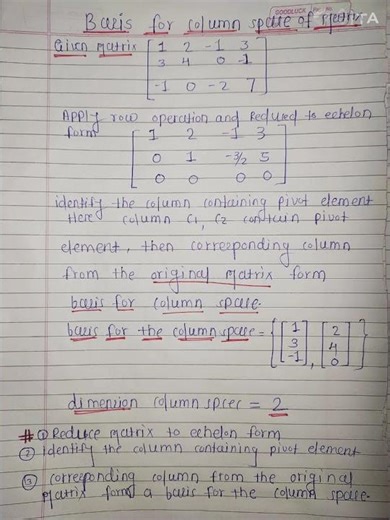 GOODLUCK
Basis for column space of matrix
Given matrix
1 2 -1 3
3 4 0 -1
-1 0 -2 7
Apply row operation and Reduced to echelon
form
1 2 -1 3
0 1 -3/2 5
0 0 0 0
identify the column containing pivot element
Here column C1, C2 contain pivot
element, then corresponding column
from the original matrix form
basis for column space.
basis for the column space = { [1 3 -1], [2 4 0] }
dimension column spces = 2
# ① Reduce matrix to echelon form
② Identify the column containing pivot element
③ corresponding column from the original
matrix form a basis for the column space.